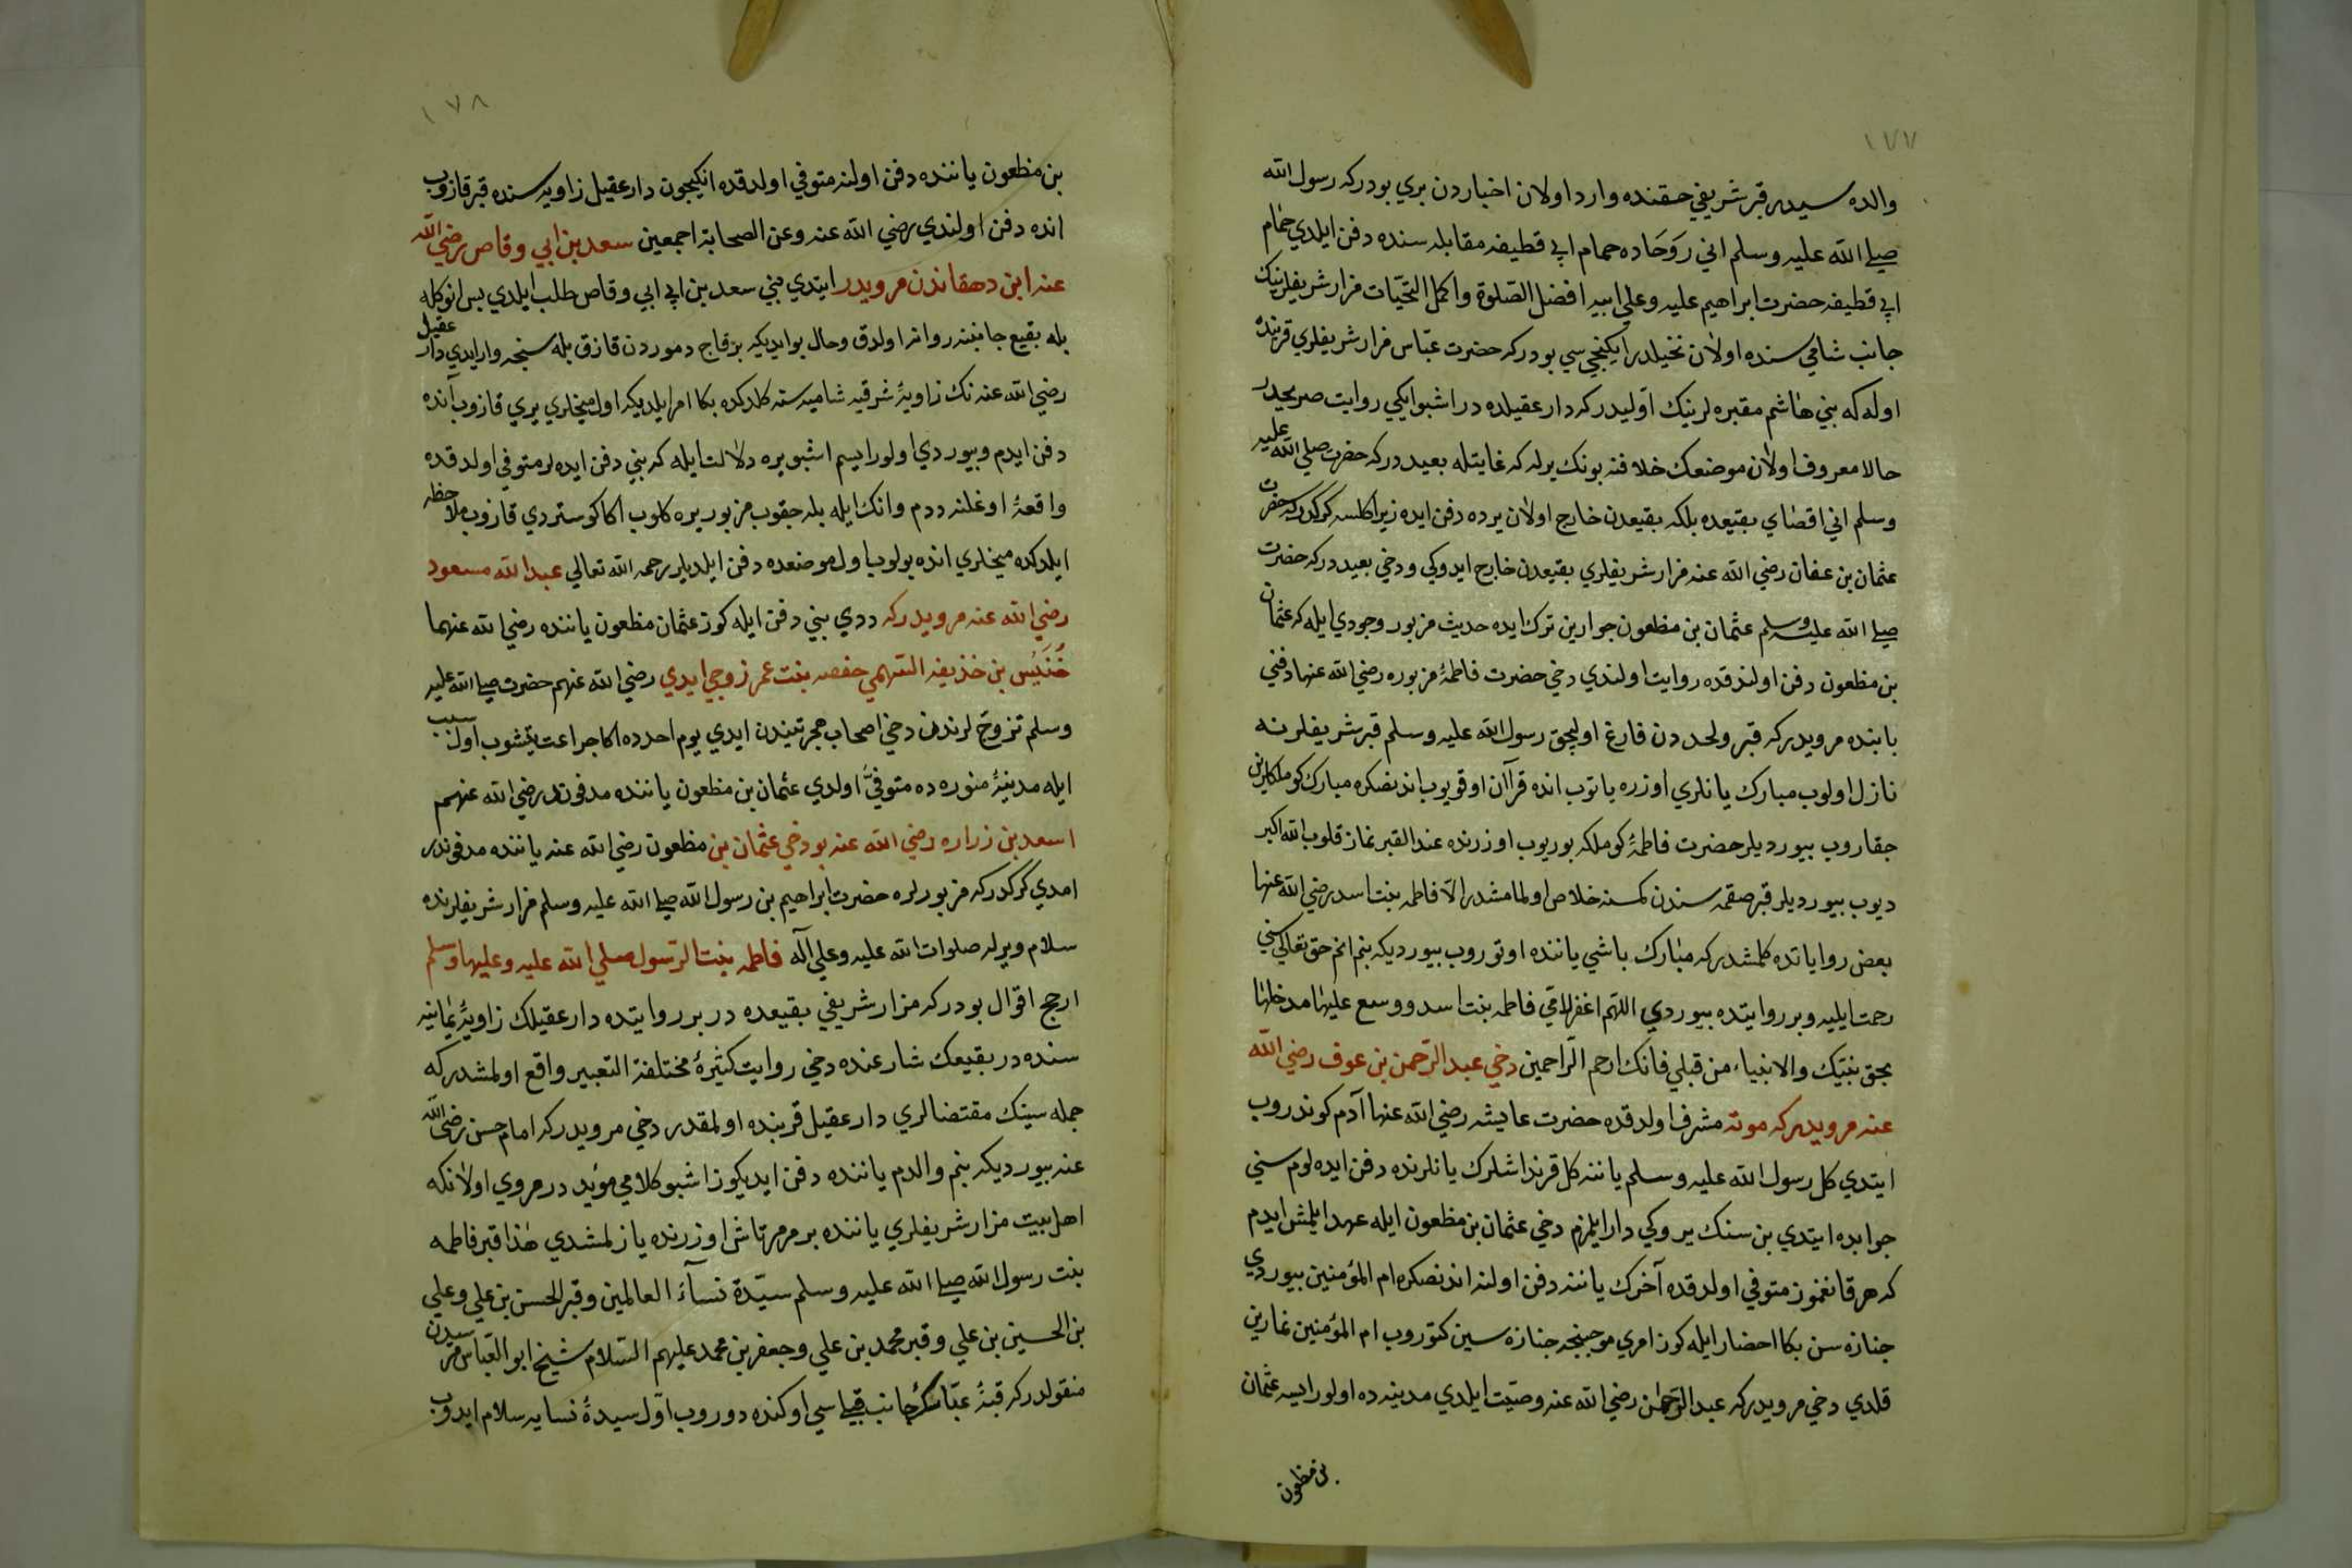 ١٧٧
والده سيدر قبر شريفي حقنده وارد اولان اخباردن بري بودركه رسول الله
صلى الله عليه وسلم اني روحاده حمام ابي قطيفه مقابله سنده دفن ايلدي حمام
ابي قطيفه حضرت ابراهيم عليه وعلي ابيه افضل الصلوة واكمل التحيات مزار شريفلرينك
جانب شامي سنده اولان نخيلدر ايكنجي سي بودركه حضرت عباس مزار شريفلري قربنده
اوله كه بني هاشم مقبره لرينك اوليدركه دار عقيلده در اشبو ايكي روايت صريحدر
حالا معروف اولان موضعك خلافنه بونك برله كه غايتله بعيددركه حضرت صلى الله عليه
وسلم اني اقصاي بقيعده بلكه بقيعدن خارج اولان يرده دفن ايده زيرا كلسه كركدركه حضرت
عثمان بن عفان رضي الله عنه مزار شريفلري بقيعدن خارج ايدوكي ودخي بعيددركه حضرت
صلى الله عليه وسلم عثمان بن مظعون جوارين ترك ايده حديث مزبور وجودي ايله كه عثمان
بن مظعون دفن اولندقده روايت اولندي دخي حضرت فاطمهٔ مزبوره رضي الله عنها دفني
بابنده مرويدركه قبر ولحددن فارغ اوليجق رسول الله عليه وسلم قبر شريفلرنه
نازل اولوب مبارك يانلري اوزره ياتوب انده قرآن اوقويوب اندنصكره مبارك كوملكلرين
جقاروب بيورديلر حضرت فاطمهٔ كوملكه بوريوب اوزرنده عند القبر نماز قلوب الله اكبر
ديوب بيورديلر قبر صقمه سندن كمسنه خلاص اولمامشدر الا فاطمه بنت اسد رضي الله عنها
بعض رواياتده كلمشدركه مبارك باشي ياننده اوتوروب بيورديكه بنم انم حق تعالى سني
رحمت ايليه وبر روايتده بيوردي اللهم اغفر لامي فاطمه بنت اسد ووسع عليها مدخلها
بحق نبيك والانبياء من قبلي فانك ارحم الراحمين دخي عبد الرحمن بن عوف رضي الله
عنه مرويدركه موته مشرف اولدقده حضرت عايشه رضي الله عنها آدم كوندروب
ايتدي كل رسول الله عليه وسلم ياننه كل قرنداشلرك يانلرنده دفن ايده لوم سني
جوابده ايتدي بن سنك يروكي دار ايلمزم دخي عثمان بن مظعون ايله عهد ايلمش ايدم
كه هر قانغموز متوفي اولدقده آخرك ياننه دفن اولنه اندنصكره ام المؤمنين بيوردي
جنازه سن بكا احضار ايله كوز امري موجبنجه جنازه سين كتوروب ام المؤمنين نمازين
قلدي دخي مرويدركه عبد الرحمن رضي الله عنه وصيت ايلدي مدينه ده اولورايسه عثمان
بن مظعون
١٧٨
بن مظعون ياننده دفن اولنه متوفي اولدقده انكيجون دار عقيل زاويه سنده قبر قازوب
انده دفن اولندي رضي الله عنه وعن الصحابة اجمعين سعد بن ابي وقاص رضي الله
عنه ابن دهقاندن مرويدر ايتدي بني سعد بن ابي ابي وقاص طلب ايلدي بس انوكله
بله بقيع جانبنه روانه اولدق وحال بوايديكه برقاج دموردن قازق بله سنجه وارايدي دار عقيل
رضي الله عنه نك زاويهٔ شرقيه شاميه سنه كلدكده بكا امر ايلديكه اول ميخلري يري قازوب آنده
دفن ايدم وبيوردي اولورايسم اشبو يره دلالت ايله كه بني دفن ايده لر متوفي اولدقده
واقعهٔ اوغلنه ددم وانك ايله بله جقوب مزبور يره كلوب اكا كوستردي قازوب ملاحظه
ايلدكده ميخلري انده بولوب اول موضعده دفن ايلديلر رحمه الله تعالى عبد الله مسعود
رضي الله عنه مرويدركه ددي بني دفن ايله كوز عثمان مظعون ياننده رضي الله عنهما
خنيس بن خذيفه السهمي حفصه بنت عمر زوجي ايدي رضي الله عنهم حضرت صلى الله عليه
وسلم تزوج لرندن دخي اصحاب هجرتيندن ايدي يوم احدده اكا جراحت يتشوب اول سبب
ايله مدينهٔ منوره ده متوفي اولدي عثمان بن مظعون ياننده مدفوندر رضي الله عنهم
اسعد بن زراره رضي الله عنه بودخي عثمان بن مظعون رضي الله عنه ياننده مدفوندر
امدي كركدركه مزبورلره حضرت ابراهيم بن رسول الله صلى الله عليه وسلم مزار شريفلرنده
سلام ويرله صلوات الله عليه وعلي آله فاطمه بنت الرسول صلي الله عليه وعليها وسلم
ارجح اقوال بودركه مزار شريفي بقيعده در بر روايتده دار عقيلك زاويهٔ يمانيه
سنده در بقيعك شارعنده دخي روايت كثيرهٔ مختلفة التعبير واقع اولمشدركه
جمله سينك مقتضالري دار عقيل قربنده اولمقدر دخي مرويدركه امام حسن رضى الله
عنه بيورديكه بنم والدم ياننده دفن ايديكوز اشبو كلامي مؤيد در مروي اولانكه
اهل بيت مزار شريفلري ياننده بر مرمر تاش اوزرنده يازلمشدي هذا قبر فاطمه
بنت رسول الله صلى الله عليه وسلم سيدة نسآء العالمين وقبر الحسن بن علي وعلي
بن الحسين بن علي وقبر محمد بن علي وجعفر بن محمد عليهم السلام شيخ ابو العباس مرسيدن
منقولدركه قبهٔ عباسك جانب قبلي سي اوكنده دوروب اول سيدهٔ نسايه سلام ايدوب